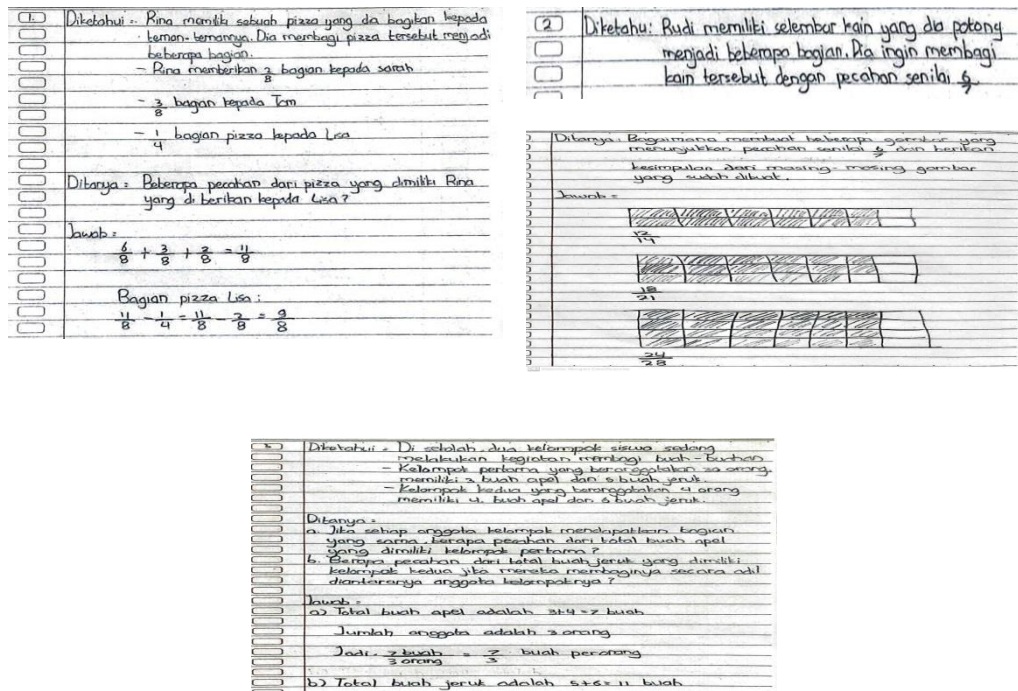 1. Diketahui : Rina memiliki sebuah pizza yang da bagikan kepada
teman-temannya. Dia membagi pizza tersebut menjadi
beberapa bagian.
- Rina memberikan 2/8 bagian kepada sarah
- 3/8 bagian kepada Tom
- 1/4 bagian pizza kepada Lisa
Ditanya : Beberapa pecahan dari pizza yang dimiliki Rina
yang di berikan kepada Lisa?
Jawab :
6/8 + 3/8 + 2/8 = 11/8
Bagian pizza Lisa :
11/8 - 1/4 = 11/8 - 2/8 = 9/8
2 Diketahu : Rudi memiliki selembar kain yang dia potong
menjadi beberapa bagian. Dia ingin membagi
kain tersebut dengan pecahan senilai 6/7
Ditanya : Bagaimana membuat beberapa gambar yang
menunjukkan pecahan senilai 6/7 dan berikan
kesimpulan dari masing-masing gambar
yang sudah dibuat.
Jawab :
12/14
18/21
24/28
3 Diketahui : Di sekolah, dua kelompok siswa sedang
melakukan kegiatan membagi buah-buahan
- Kelompok pertama yang beranggotakan orang
memiliki 3 buah apel dan 5 buah jeruk.
- Kelompok kedua yang beranggotakan 4 orang
memiliki 4 buah apel dan 6 buah jeruk.
Ditanya :
a. Jika setiap anggota kelompok mendapatkan bagian
yang sama, berapa pecahan dari total buah apel
yang dimiliki kelompok pertama?
b. Berapa pecahan dari total buah jeruk yang dimiliki
kelompok kedua jika mereka membaginya secara adil
diantaranya anggota kelompoknya?
Jawab :
a) Total buah apel adalah 3+4 = 7 buah
Jumlah anggota adalah 3 orang
Jadi 7 buah/3 orang = 7/3 buah perorang
b) Total buah jeruk adalah 5+6 = 11 buah